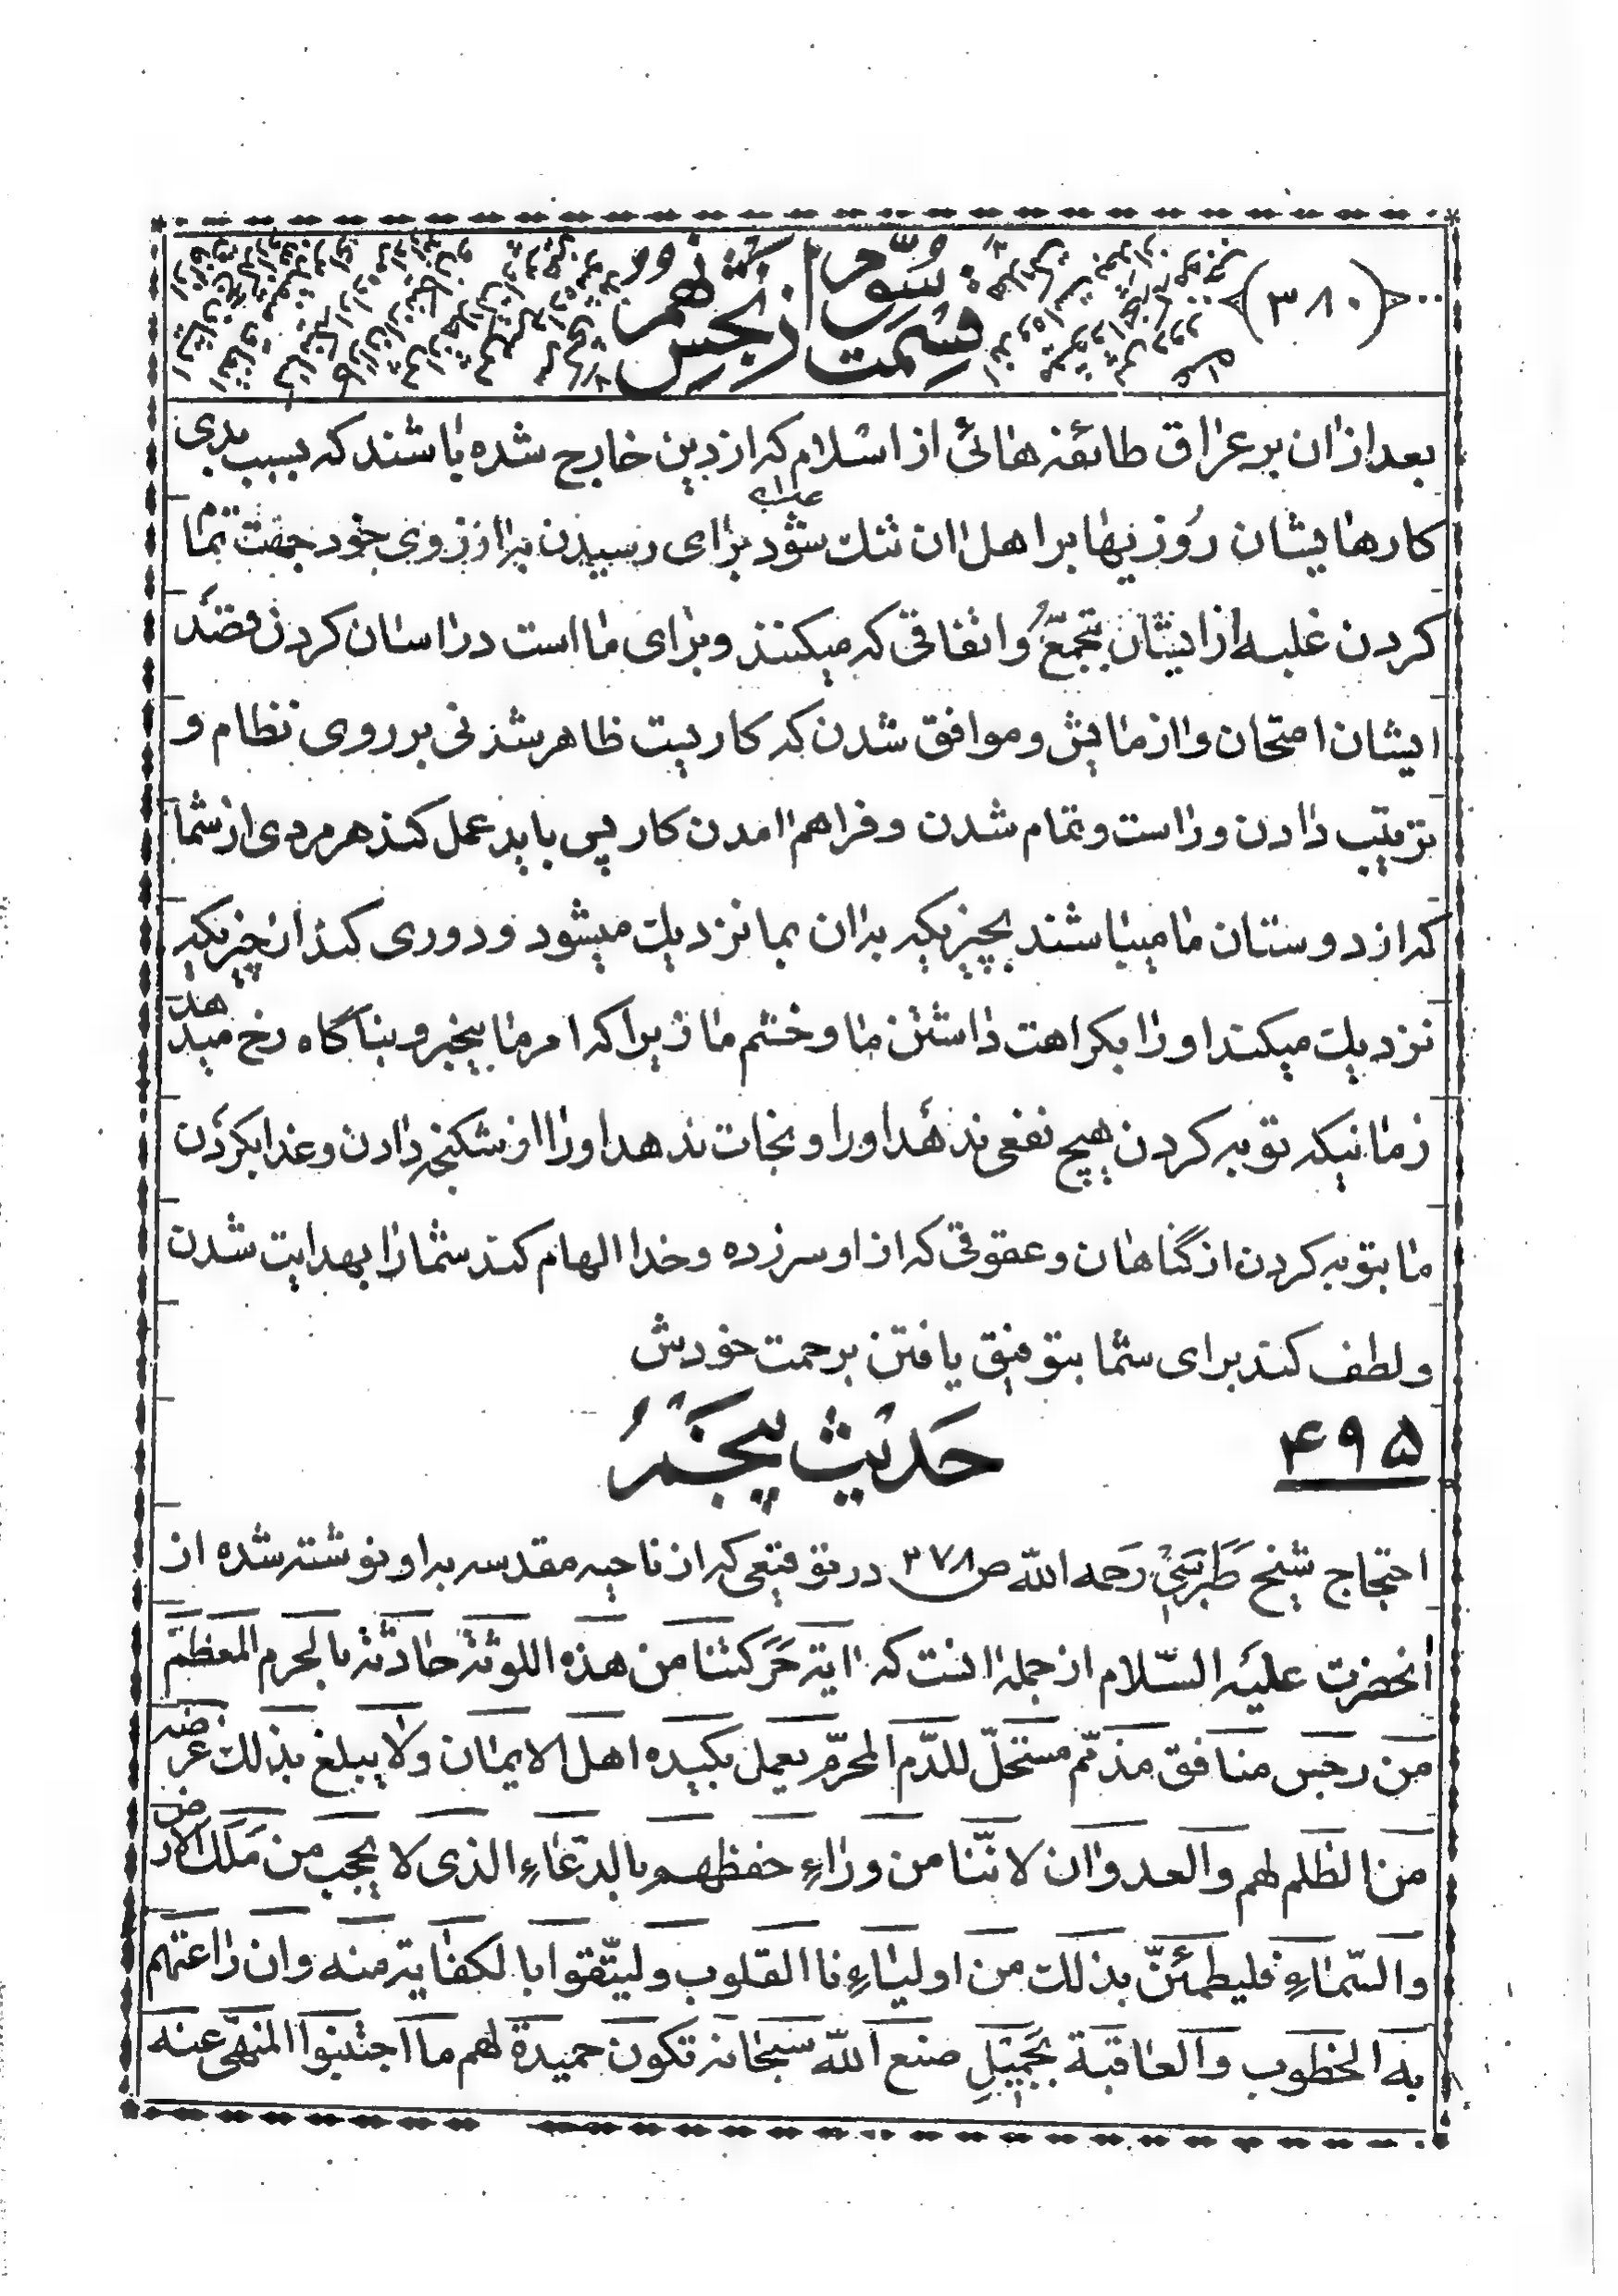 (۳۸۰)
قسمت سوّم از بخش نهم
بعد از ان بر عراق طائفه هائی از اسلام که از دین خارج شده باشند که بسبب بدی
کارهایشان روزیها بر اهل ان تنك شود برای رسیدن بارزوی خود جهت تمام
کردن غلبه از ایشان بتجمّع و اتفاقی که میکنند و برای ما است در اسان کردن قصد
ایشان امتحان و ازمایش و موافق شدن که کاریست ظاهر شدنی بر روی نظام و
ترتیب دادن و راست و تمام شدن و فراهم امدن کار پس باید عمل کند هر مردی از شما
که از دوستان ما میباشند بچیزیکه بدان بما نزدیك میشود و دوری کند از چیزیکه
نزدیك میکند او را بکراهت داشتن ما و خشم ما زیرا که امر ما بیخبر و بناگاه رخ میدهد
زمانیکه توبه کردن هیچ نفعی ندهد او را و نجات ندهد او را از شکنجه دادن و عذاب کردن
ما بتوبه کردن از گناهان و عقوقی که از او سر زده و خدا الهام کند شما را بهدایت شدن
و لطف کند برای شما بتوفیق یافتن برحمت خودش
۴۹۵ حدیث پنجم
احتجاج شیخ طبرسی رحمه الله ص ۳۷۸ در توقیعی که از ناحیه مقدسه براو نوشته شده از
انحضرت علیه السّلام از جمله انست که ایة حرکتنا من هذه اللوثة حادثة بالحرم المعظم
من رجس منافق مذمّم مستحلّ للدّم المحرّم یعمل بکیده اهل الایمان ولا یبلغ بذلك غرضه
من الظلم لهم والعدوان لانّنا من وراء حفظهم بالدّعاء الذی لا یحجب من ملك الارض
والسّماء فلیطمئنّ بذلك من اولیاءنا القلوب ولیتّقوا بالکفایة منه وان راعتهم
به الخطوب والعاقبة بجمیل صنع الله سبحانه تکون حمیدة لهم ما اجتنبوا المنهیّ عنه